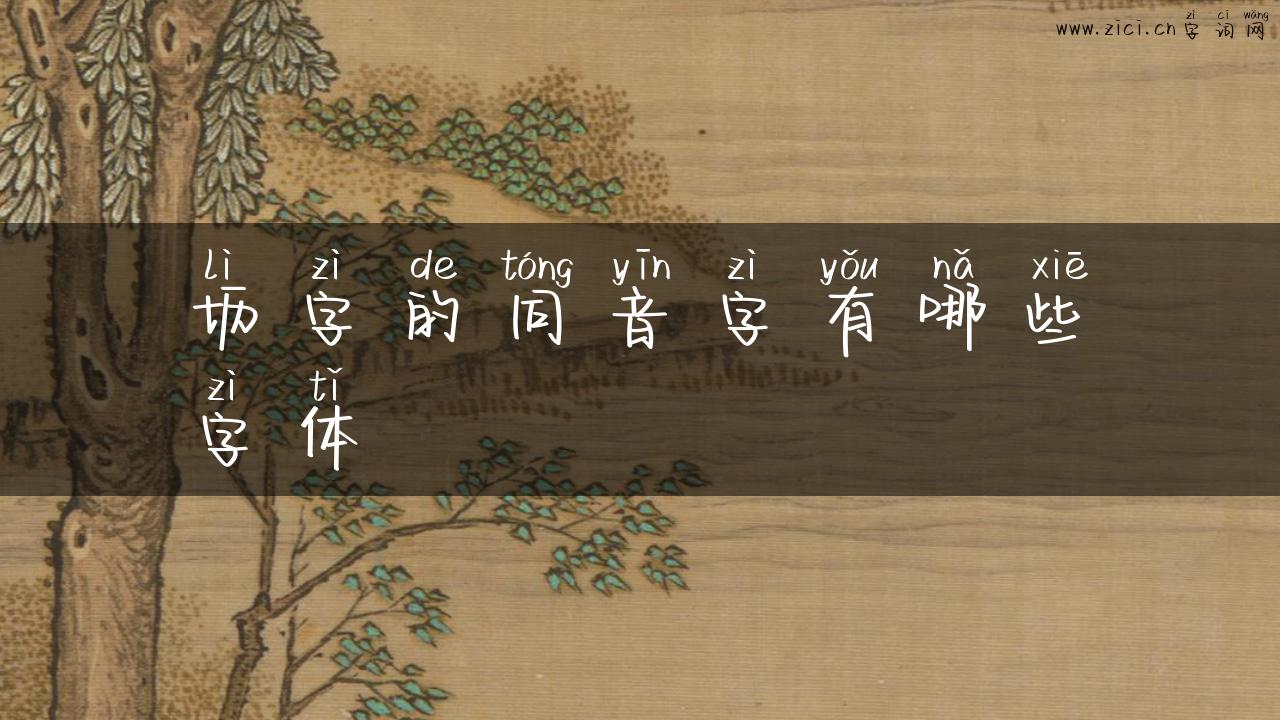 zì cí wǎng
www.zici.cn 字词网
lì zì de tóng yīn zì yǒu nǎ xiē
坜字的同音字有哪些
zì tǐ
字体